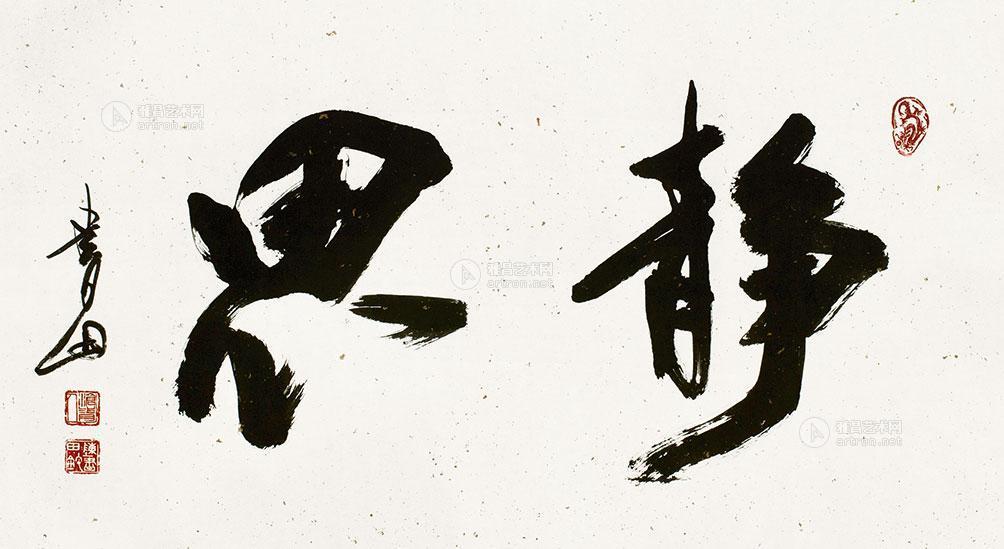 静思
書田
雅昌艺术网
artron.net
雅昌艺术网
artron.net
雅昌艺术网
artron.net